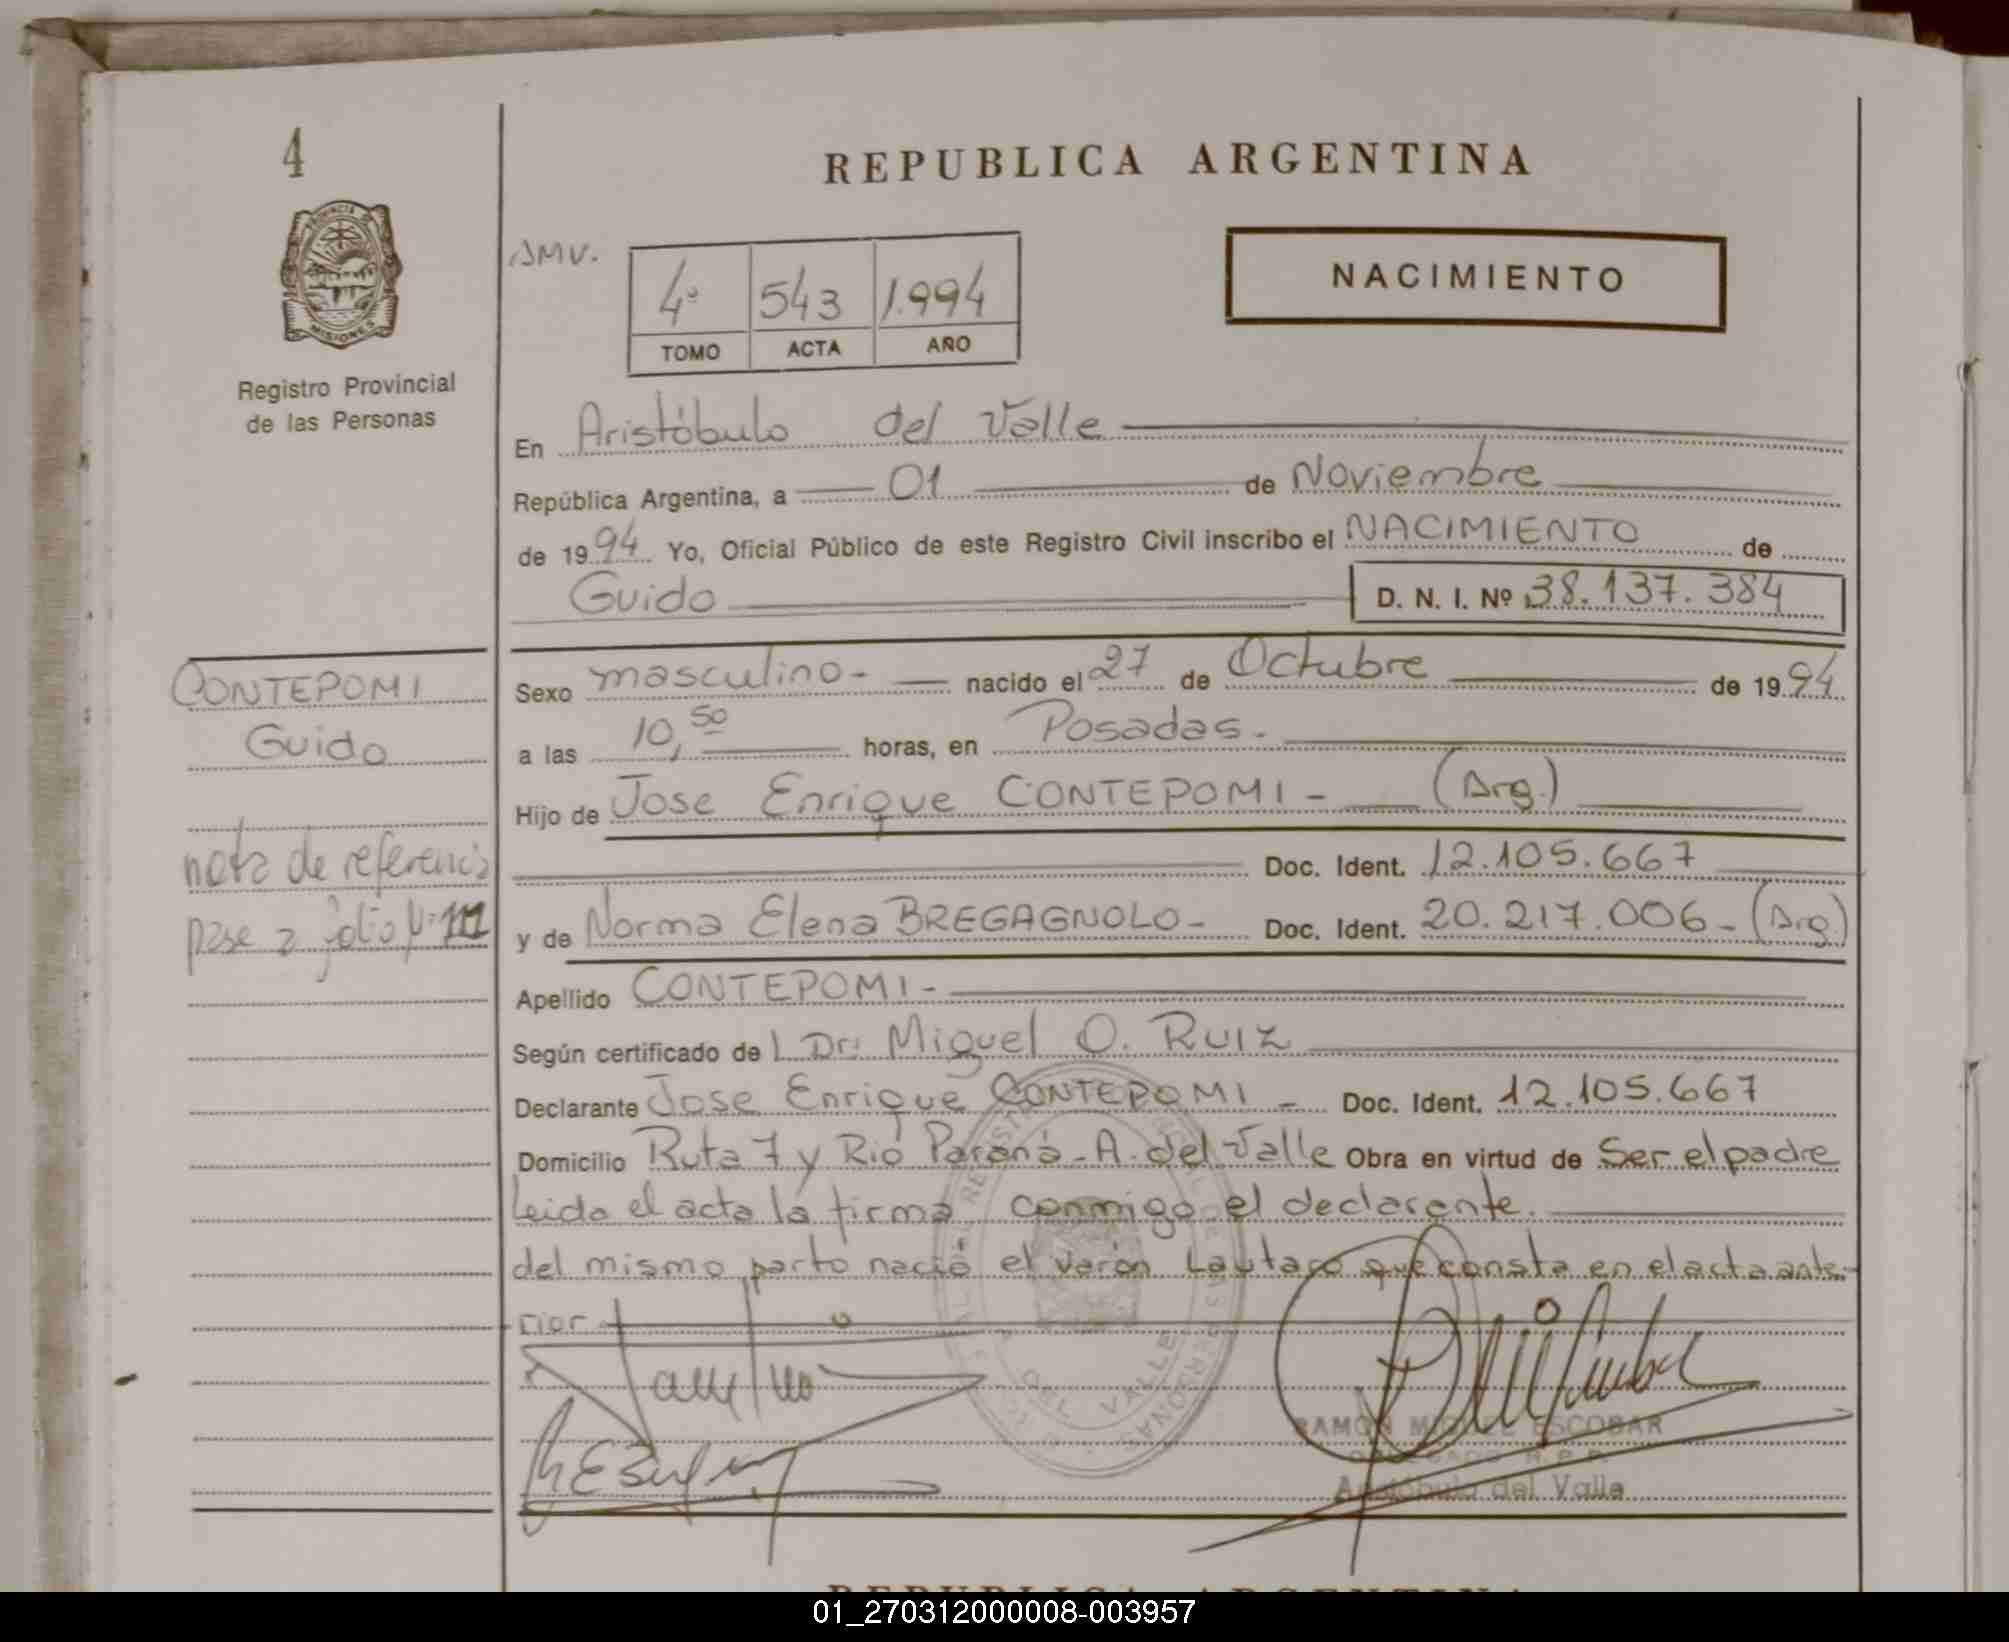 4
REPUBLICA ARGENTINA
PROVINCIA DE
MISIONES
Registro Provincial
de las Personas
JMV.
4º 543 1.994
TOMO ACTA AÑO
NACIMIENTO
En Aristóbulo del Valle
República Argentina, a 01 de Noviembre
de 1994 Yo, Oficial Público de este Registro Civil inscribo el NACIMIENTO de
Guido D. N. I. Nº 38.137.384
CONTEPOMI
Guido
nota de referencia
pase a folio Nº
Sexo masculino- nacido el 27 de Octubre de 1994
a las 10,50 horas, en Posadas.
Hijo de Jose Enrique CONTEPOMI - (Arg.)
Doc. Ident. 12.105.667
y de Norma Elena BREGAGNOLO- Doc. Ident. 20.217.006-(Arg.)
Apellido CONTEPOMI-
Según certificado del Dr: Miguel O. RUIZ
Declarante Jose Enrique CONTEPOMI - Doc. Ident. 12.105.667
Domicilio Ruta 7 y Rió Paraná-A. del Valle Obra en virtud de Ser el padre
Leida el acta la firma conmigo el declarante.
del mismo parto nació el varón Lautaro que consta en el acta ante-
rior
DEL VALLE
RAMON MIGUEL ESCOBAR
DELEGADO R.P.P.
Aristóbulo del Valle
REPUBLICA ARGENTINA
01_270312000008-003957